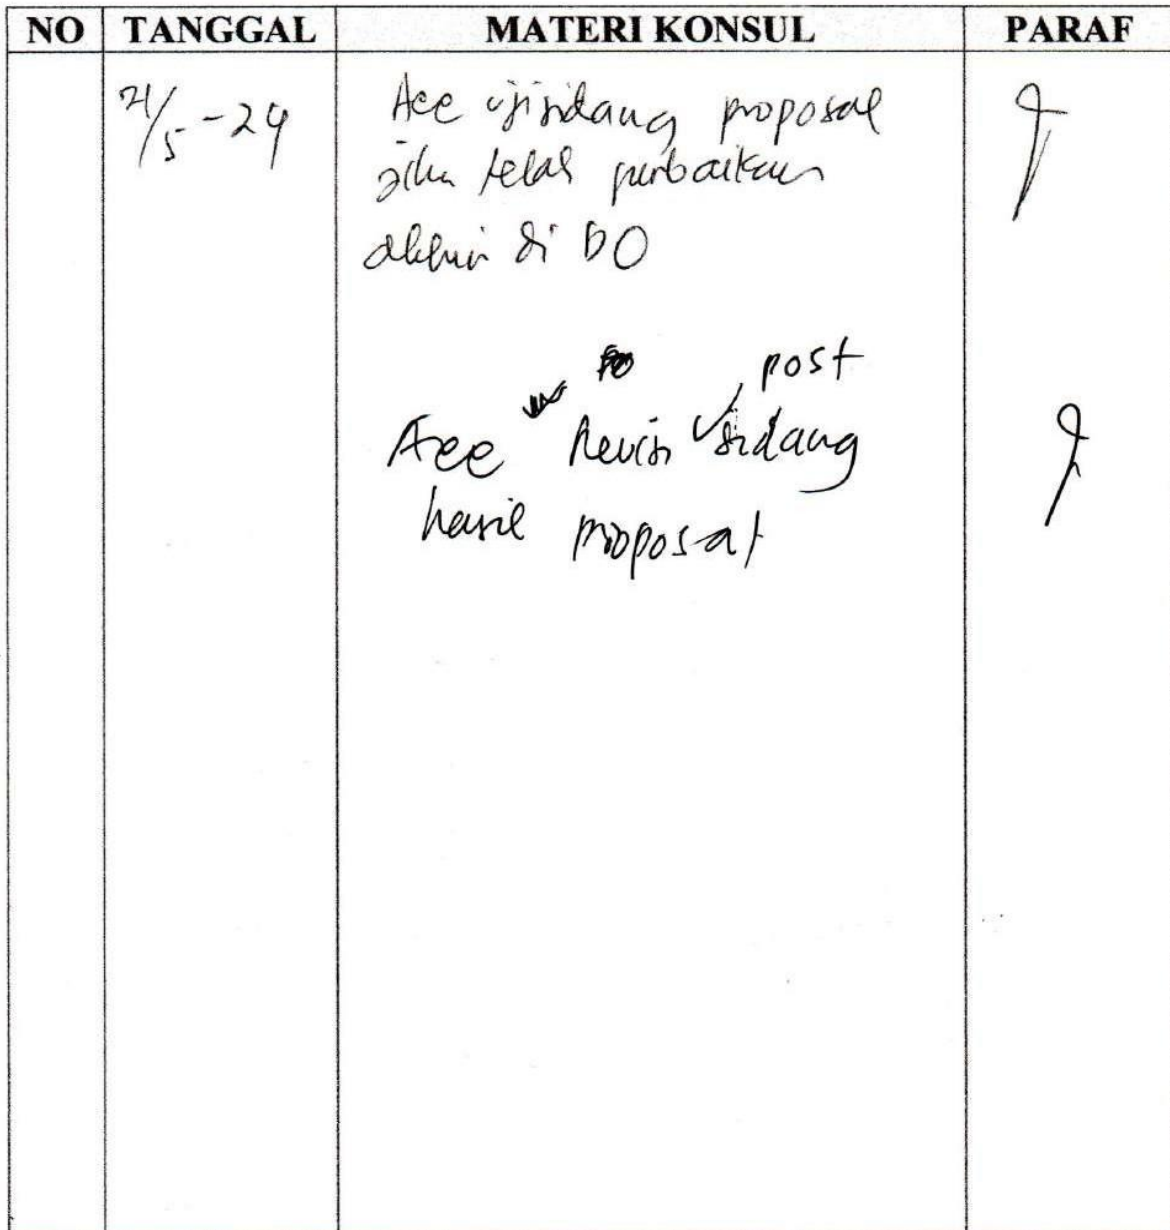 NO TANGGAL MATERI KONSUL PARAF
21/5-24 Acc uji sidang proposal
jika telah perbaikan
akhir di DO
post
Acc Revisi sidang
hasil proposal